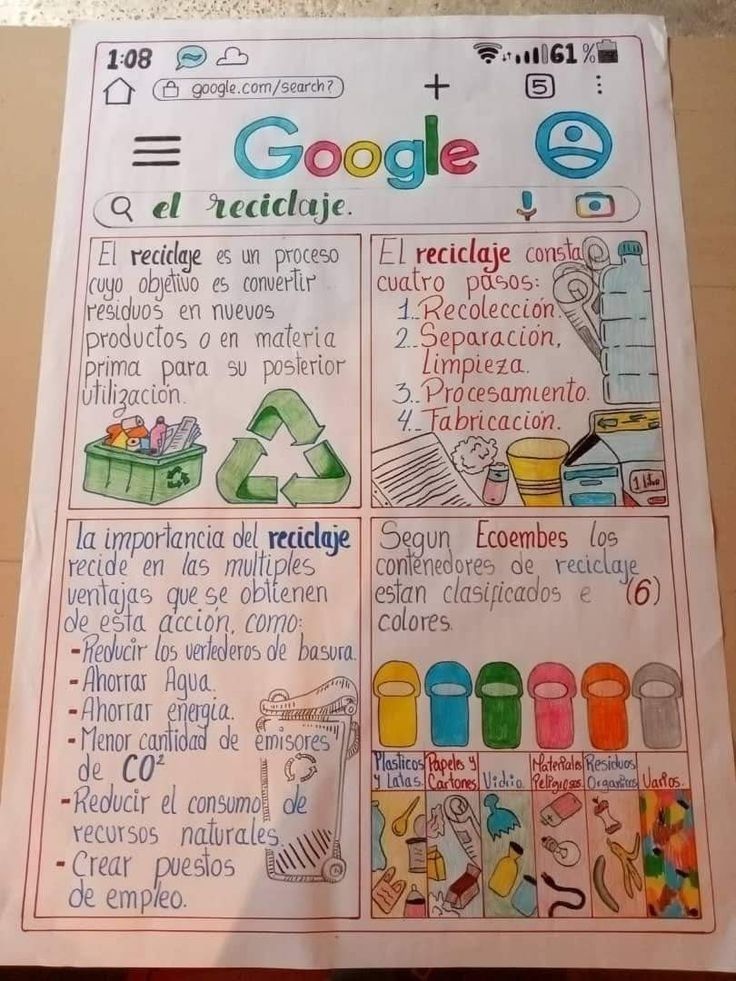 1:08 61 %
google.com/search? + 5
Google
el reciclaje.
El reciclaje es un proceso
cuyo objetivo es convertir
residuos en nuevos
productos o en materia
prima para su posterior
utilización.
El reciclaje consta
cuatro pasos:
1.-Recolección.
2.-Separación,
Limpieza.
3.-Procesamiento.
4.-Fabricación.
1 litro
la importancia del reciclaje
recide en las multiples
ventajas que se obtienen
de esta acción, como:
-Reducir los vertederos de basura.
-Ahorrar Agua.
-Ahorrar energia.
-Menor cantidad de emisores
de CO²
-Reducir el consumo de
recursos naturales.
-Crear puestos
de empleo.
Segun Ecoembes los
contenedores de reciclaje
estan clasificados e (6)
colores.
Plasticos
y Latas.
Papeles y
Cartones
Vidrio.
Materiales
Peligrosos
Residuos
Organicos
Varios.